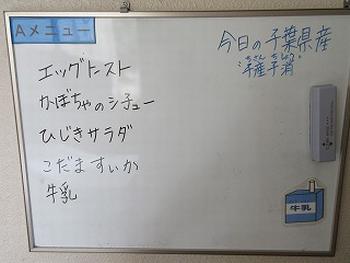 Aメニュー
エッグトースト
かぼちゃのシチュー
ひじきサラダ
こだますいか
牛乳
今日の千葉県産
ちさん ちしょう
"千産千消"
牛乳